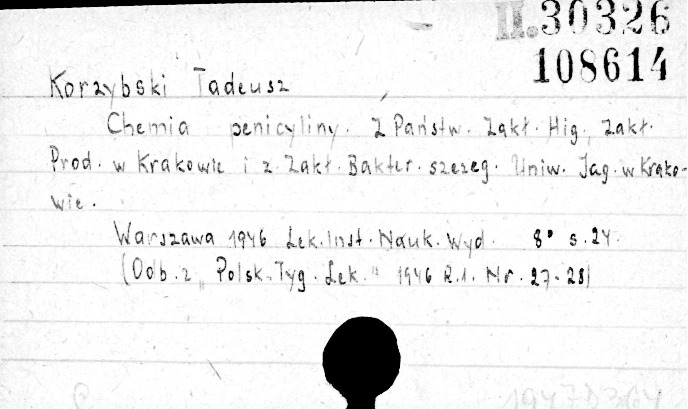 II.30326
108614
Korzybski Tadeusz
Chemia penicyliny. Z Państw. Zakł. Hig., Zakł.
Prod. w Krakowie i z Zakł. Bakter. szczeg. Uniw. Jag. w Krako-
wie.
Warszawa 1946 Lek. Inst. Nauk. Wyd. 8° s. 24.
(Odb. z „Polsk. Tyg. Lek." 1946 R.1. Nr. 27-28)